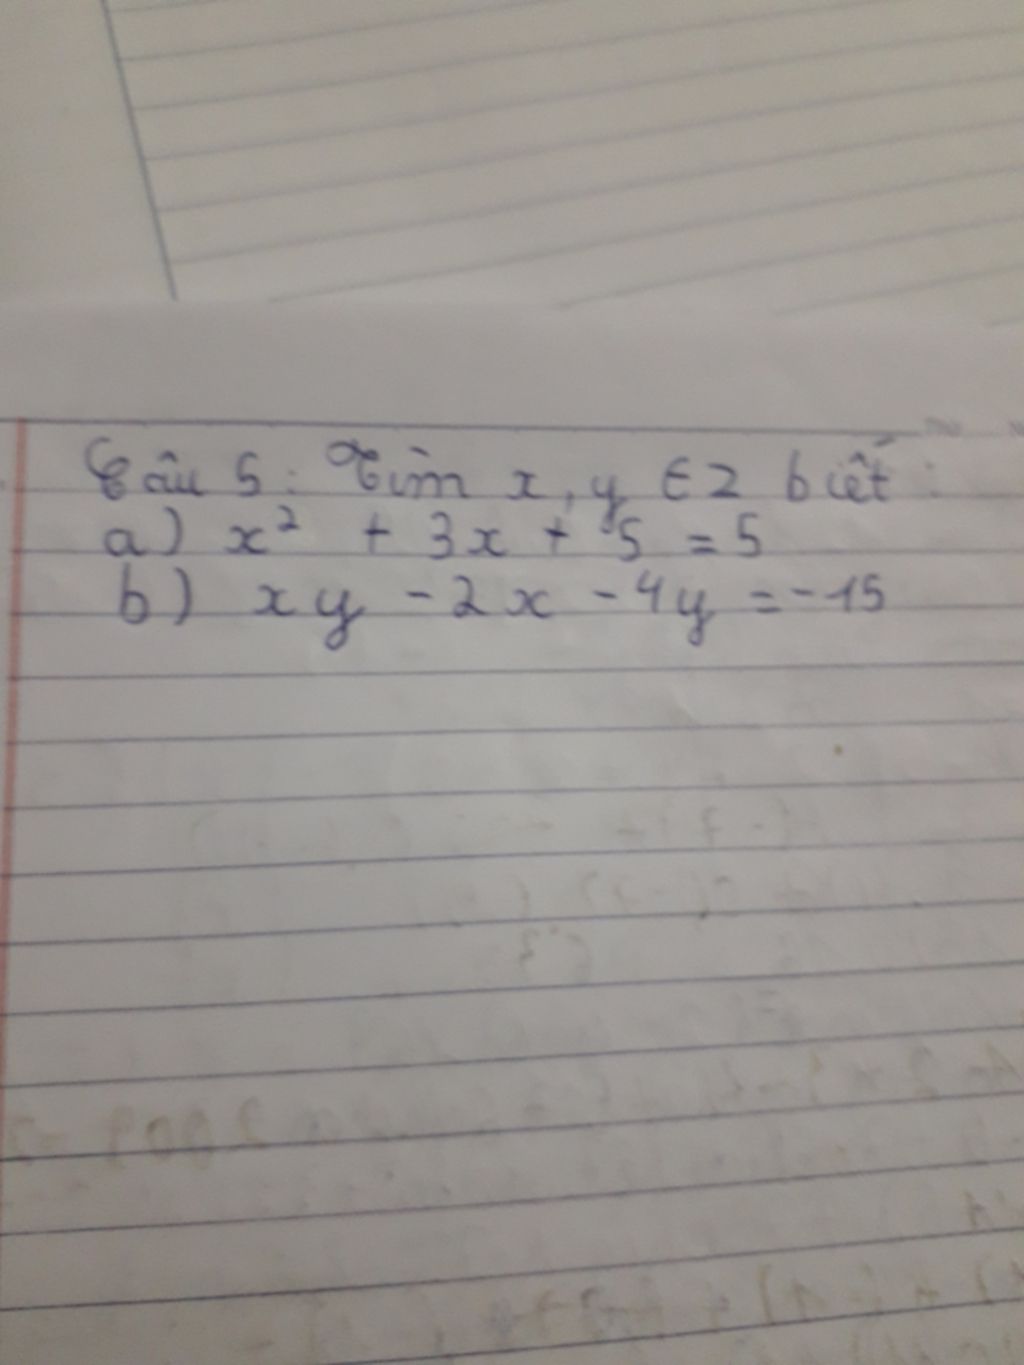 Câu 5: Tìm x, y ∈ Z biết:
a) x² + 3x + 5 = 5
b) xy - 2x - 4y = -15